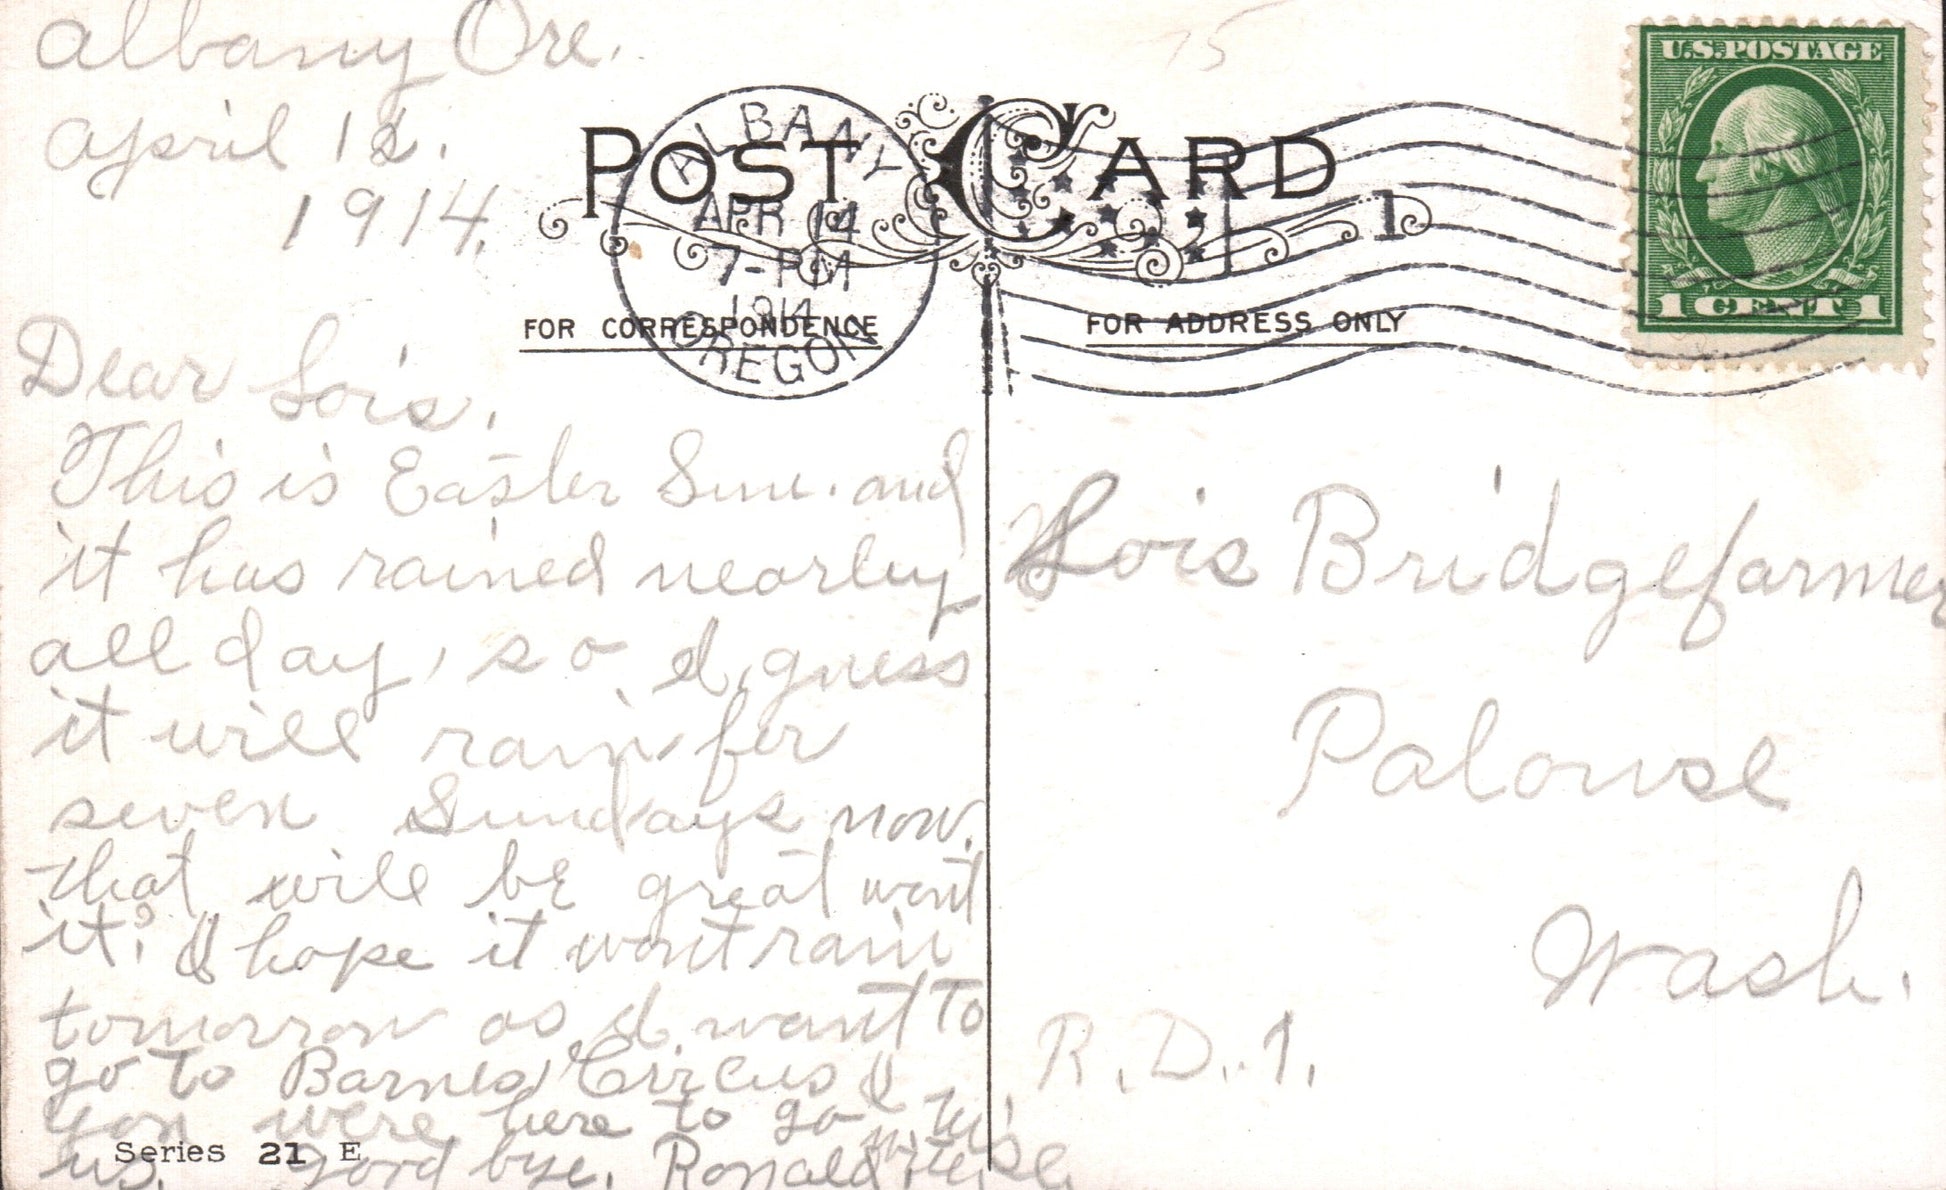 Albany Ore.
April 12.
1914.
75
POST CARD
ALBANY
APR 14
7-PM
1914
OREGON
1
U.S. POSTAGE
1 CENT 1
FOR CORRESPONDENCE
FOR ADDRESS ONLY
Dear Lois,
This is Easter Sun. and
it has rained nearly
all day, so I guess
it will rain for
seven Sundays now.
that will be great wont
it? I hope it wont rain
tomorrow as I want to
go to Barnes Circus
you were here to go with
us. Good bye. Ronald
Lois Bridgefarmer
Palouse
Wash.
R.D.1.
Series 21 E